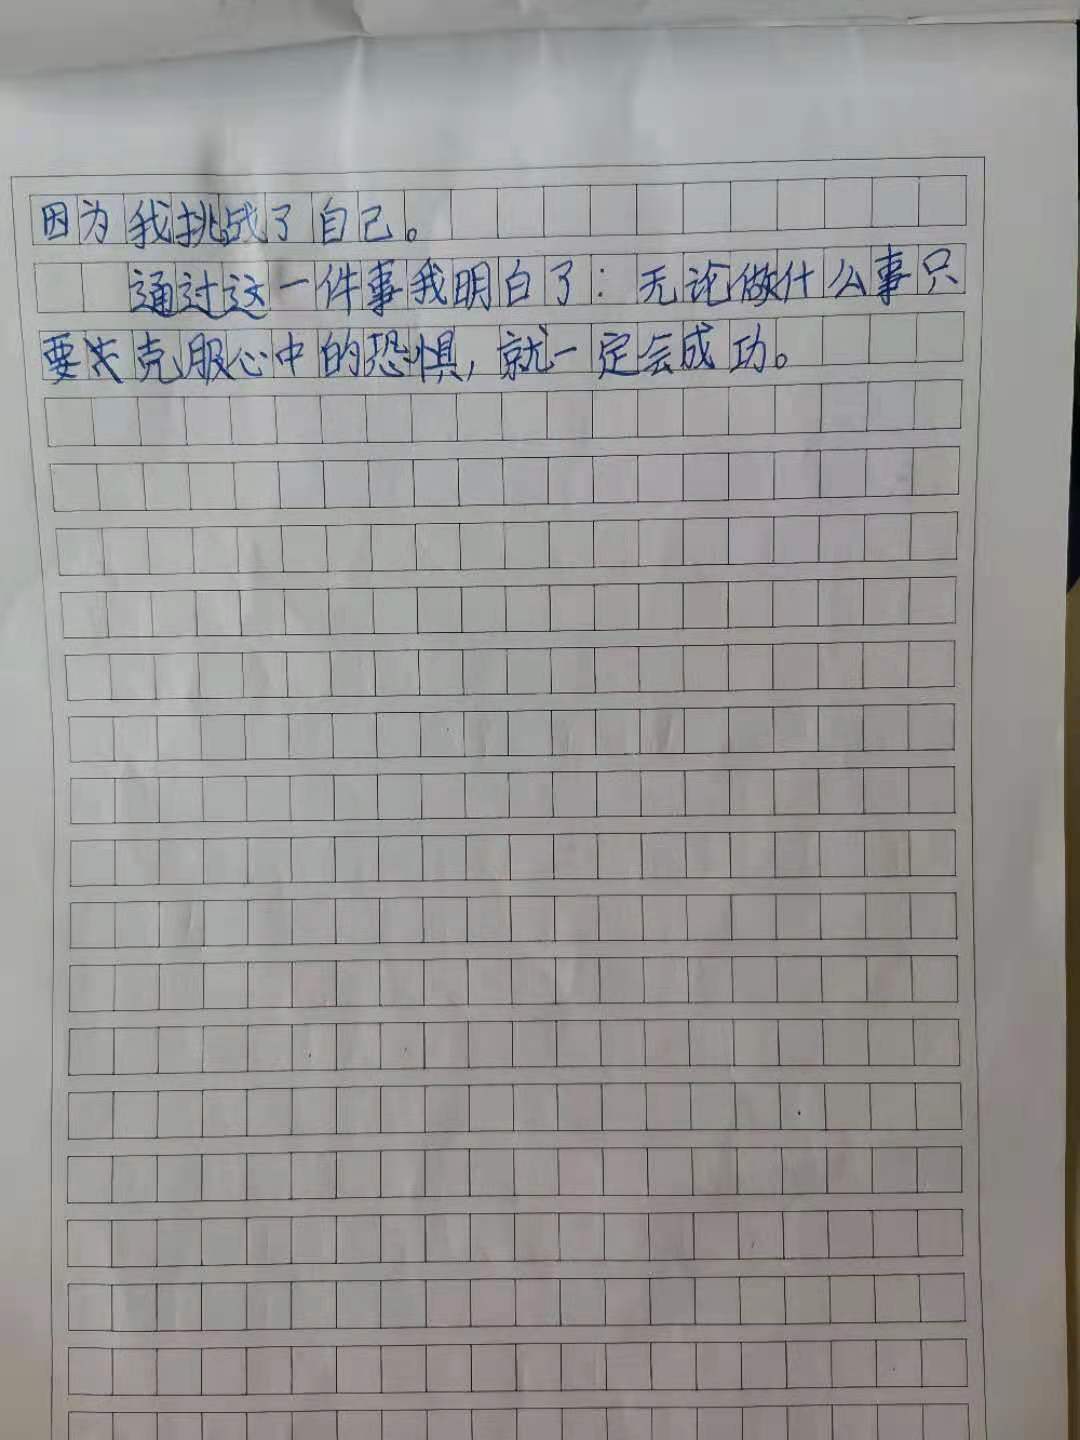 因为我挑战了自己。
通过这一件事我明白了：无论做什么事只
要克服心中的恐惧，就一定会成功。